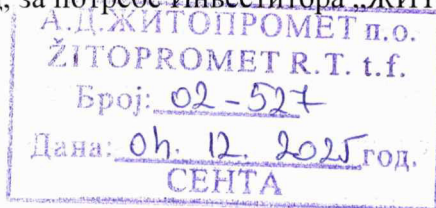 за потребе Инвеститора „ЖИТ
А.Д.ЖИТОПРОМЕТ п.о.
ŽITOPROMET R.T. t.f.
Број: 02-527
Дана: 04. 12. 2025 год.
СЕНТА